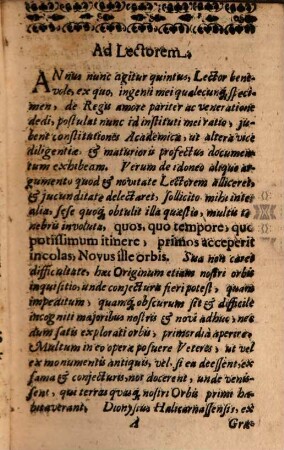 Ad Lectorem.
ANnus nunc agitur quintus, Lector bene-
vole, ex quo, ingenii mei qualecunq; speci-
men, de Regis amore pariter ac veneratione
dedi, postulat nunc id instituti mei ratio, ju-
bent constitutiones Academicæ, ut altera vice
diligentiæ & maturioris profectus documen-
tum exhibeam. Verum de idoneo aliquo ar-
gumento quod & novitate Lectorem alliceret
& jucunditate delectaret, sollicito mihi inter
alia, sese quoq; obtulit illa quæstio, multis te-
nebris involuta, quos, quo tempore, quo
potissimum itinere, primos acceperit
incolas, Novus ille orbis. Sua non caret
difficultate, hæc Originum etiam nostri orbis
inquisitio, unde conjectura fieri potest, quam
impeditum, quamq; obscurum sit & difficile
incogniti majoribus nostris & novi adhuc, nec
dum satis explorati orbis, primordia aperire.
Multum in eo operæ posuere Veteres, ut vel
ex monumentis antiquis, vel, si ea deessent, ex
fama & conjecturis, nos docerent, unde venis-
sent, qui terras quasq; nostri Orbis primi ha-
bitaverant, Dionysius Halicarnassensis, ex
A Græ-